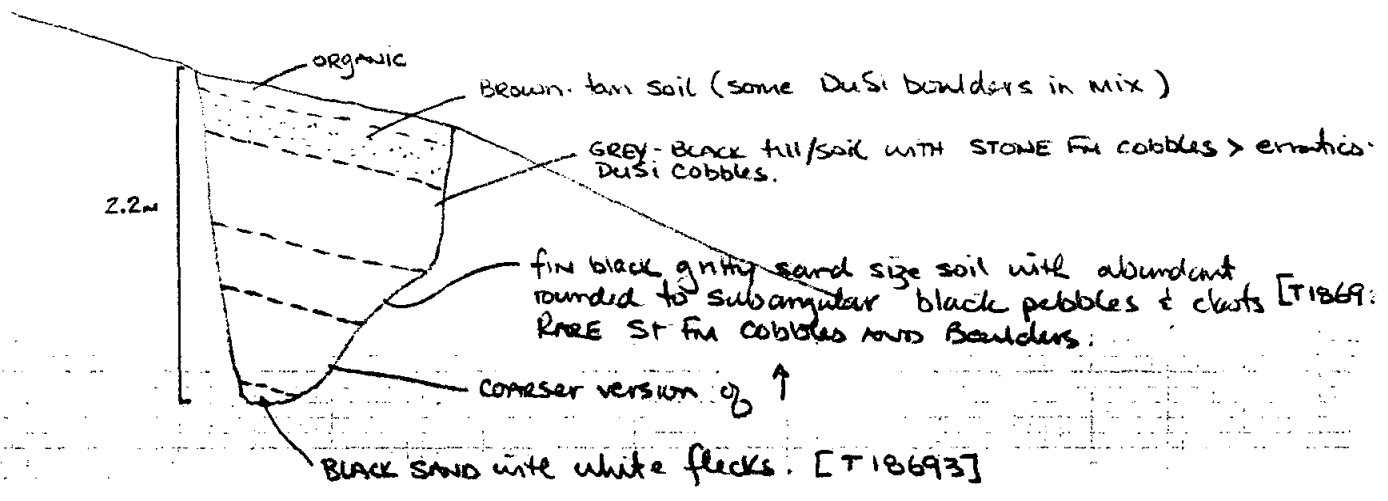 ORGANIC
BROWN-tan soil (some DuSi boulders in mix)
GREY-BLACK till/soil WITH STONE FM cobbles > erratics.
DuSi cobbles.
2.2m
fin black gritty sand size soil with abundant
rounded to subangular black pebbles & clasts [T1869
RARE St FM cobbles AND Boulders.
COARSER version of ↑
BLACK SAND with white flecks. [T18693]